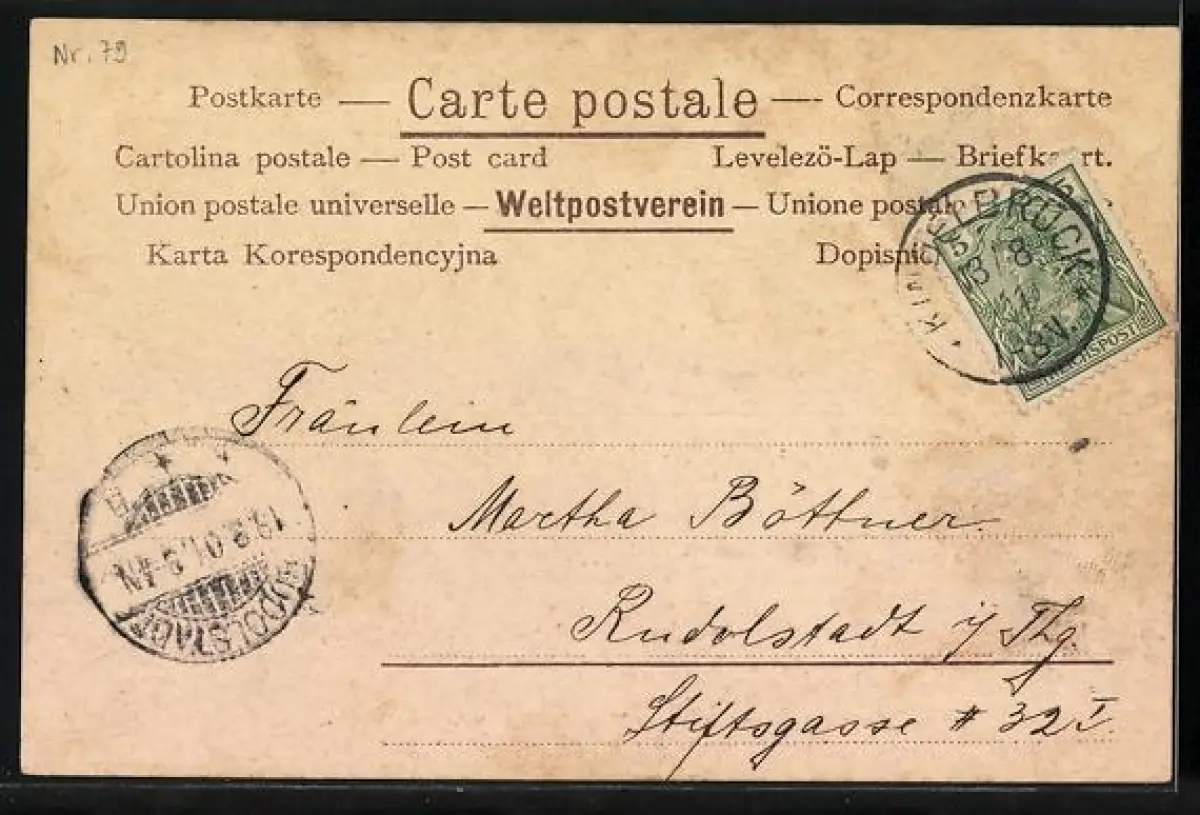 Nr. 79
Postkarte — Carte postale — Correspondenzkarte
Cartolina postale — Post card Levelezö-Lap — Briefka rt.
Union postale universelle — Weltpostverein — Unione postale
Karta Korespondencyjna
KIN ELBRÜCK
8
REICHSPOST
Fräulein
Martha Böttner
Rudolstadt i/Thg.
Stiftsgasse # 32 I.
RUDOLSTADT
19.8.01. 3-4N